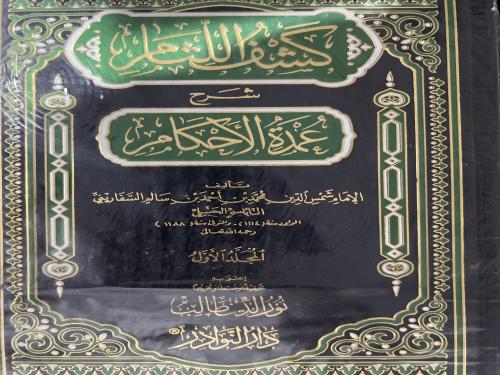 كشف اللثام
شرح
عمدة الأحكام
تأليف
الإمام شمس الدين محمد بن أحمد بن سالم السفاريني
النابلسي الحنبلي
المولود سنة (١١١٤) والمتوفى سنة (١١٨٨)
رحمه الله تعالى
المجلد الأول
اعتنى به
تحقيقا وضبطا وتخريجا
نور الدين طالب
دار النوادر